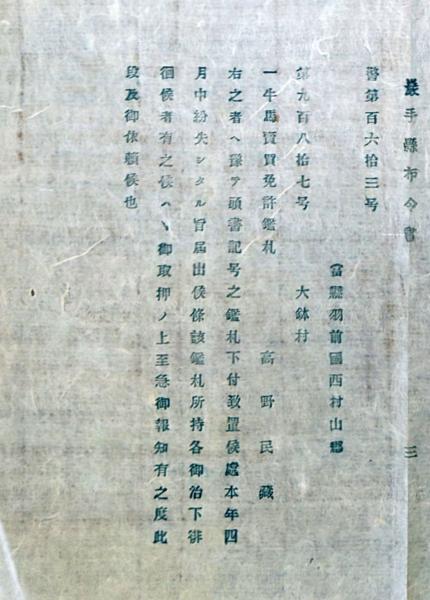 岩手縣布令書 三
警第百六拾三号
當縣羽前國西村山郡
第九百八拾七号 大鉢村
一牛馬賣買免許鑑札 高野民藏
右之者ヘ豫テ頭書記号之鑑札下付致置候處本年四
月中紛失シタル旨届出侯條該鑑札所持各御治下徘
徊侯者有之侯ハヽ御取押ノ上至急御報知有之度此
段及御依頼候也